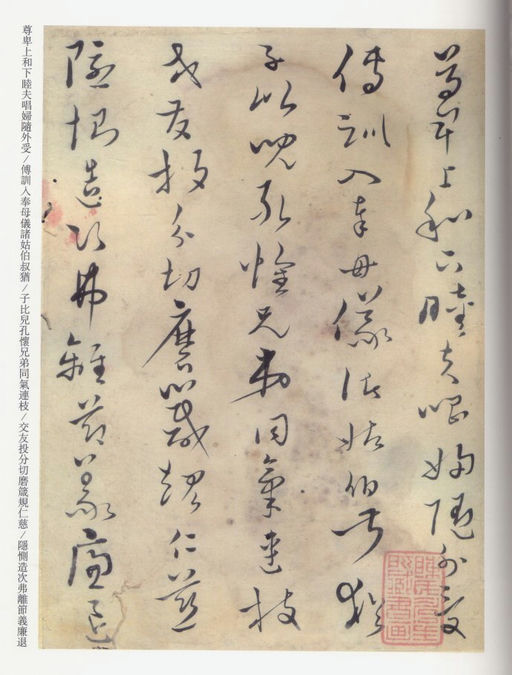 尊卑上和下睦夫唱婦隨外受
傅訓入奉母儀諸姑伯叔猶
子比兒孔懷兄弟同氣連枝
交友投分切磨箴規仁慈
隱惻造次弗離節義廉退
尊卑上和下睦夫唱婦隨外受/傅訓入奉母儀諸姑伯叔猶/子比兒孔懷兄弟同氣連枝/交友投分切磨箴規仁慈/隱惻造次弗離節義廉退